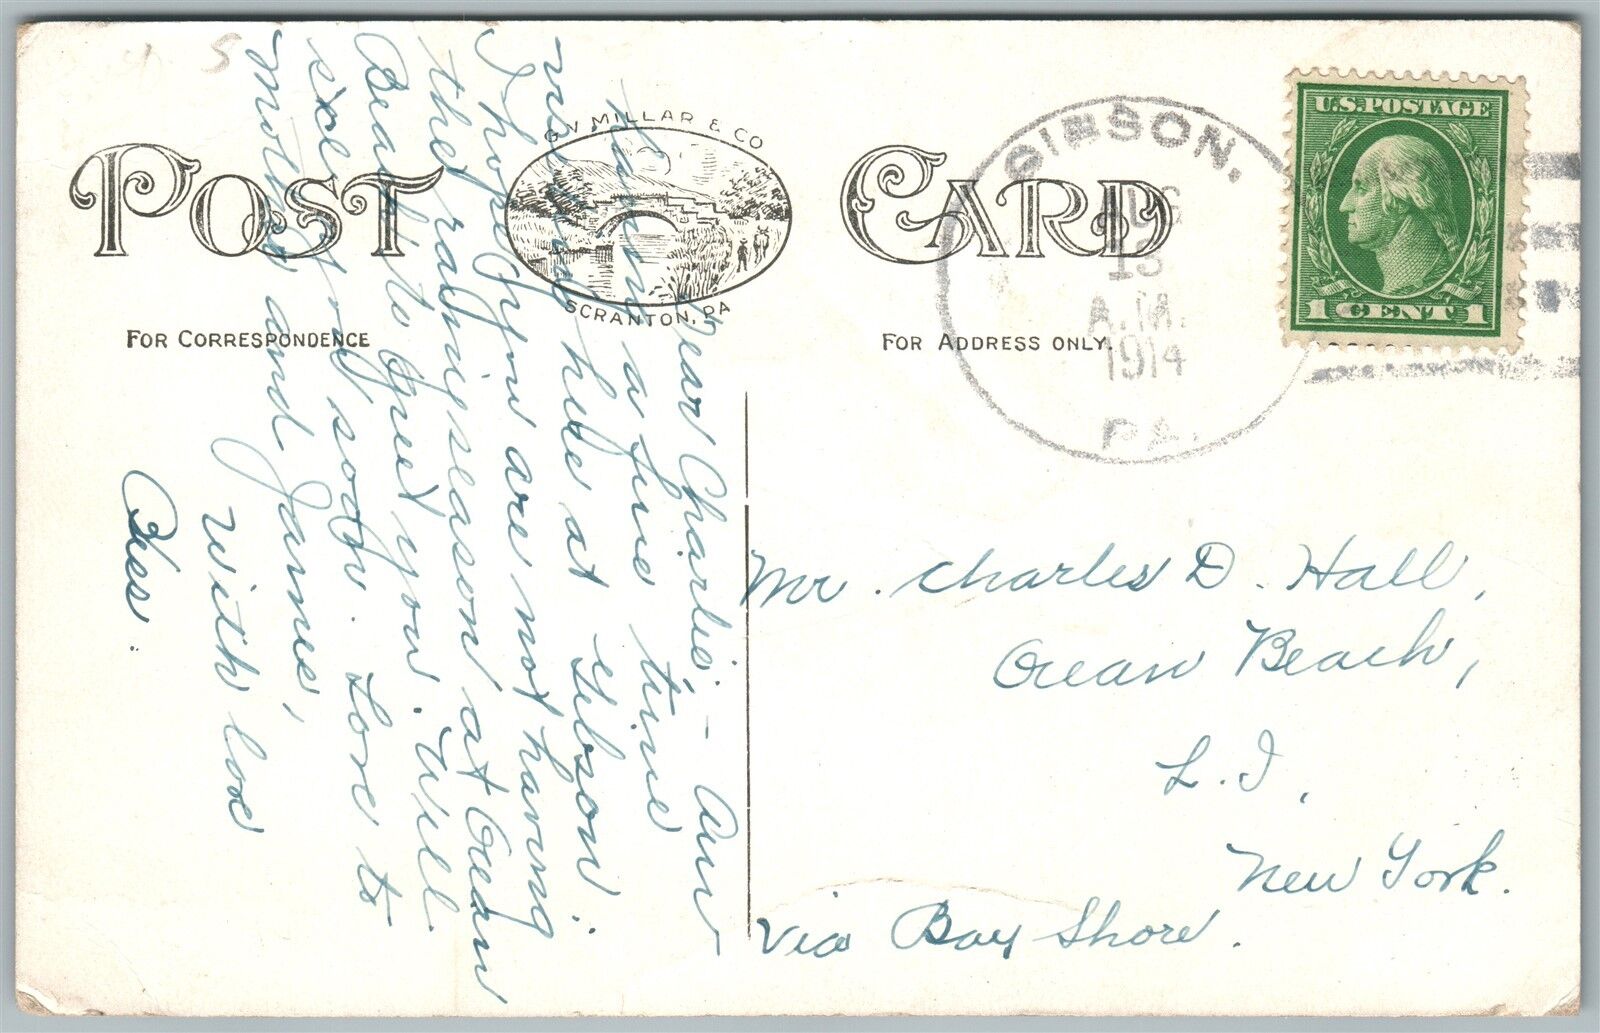 POST CARD
G. V. MILLAR & CO
SCRANTON, PA
FOR CORRESPONDENCE
FOR ADDRESS ONLY.
GIBSON,
AUG
13
A.M.
1914
PA.
U.S. POSTAGE
1 CENT 1
Dear Charlie, - Am
having a fine time
here at Gibson.
I hope you are not having
the rainy season at Ocean
Beach to greet you. Will
see you soon. Love to
Mother and James,
With love
Bess.
Mr. Charles D. Hall,
Ocean Beach,
L. I.,
New York.
Via Bay Shore.